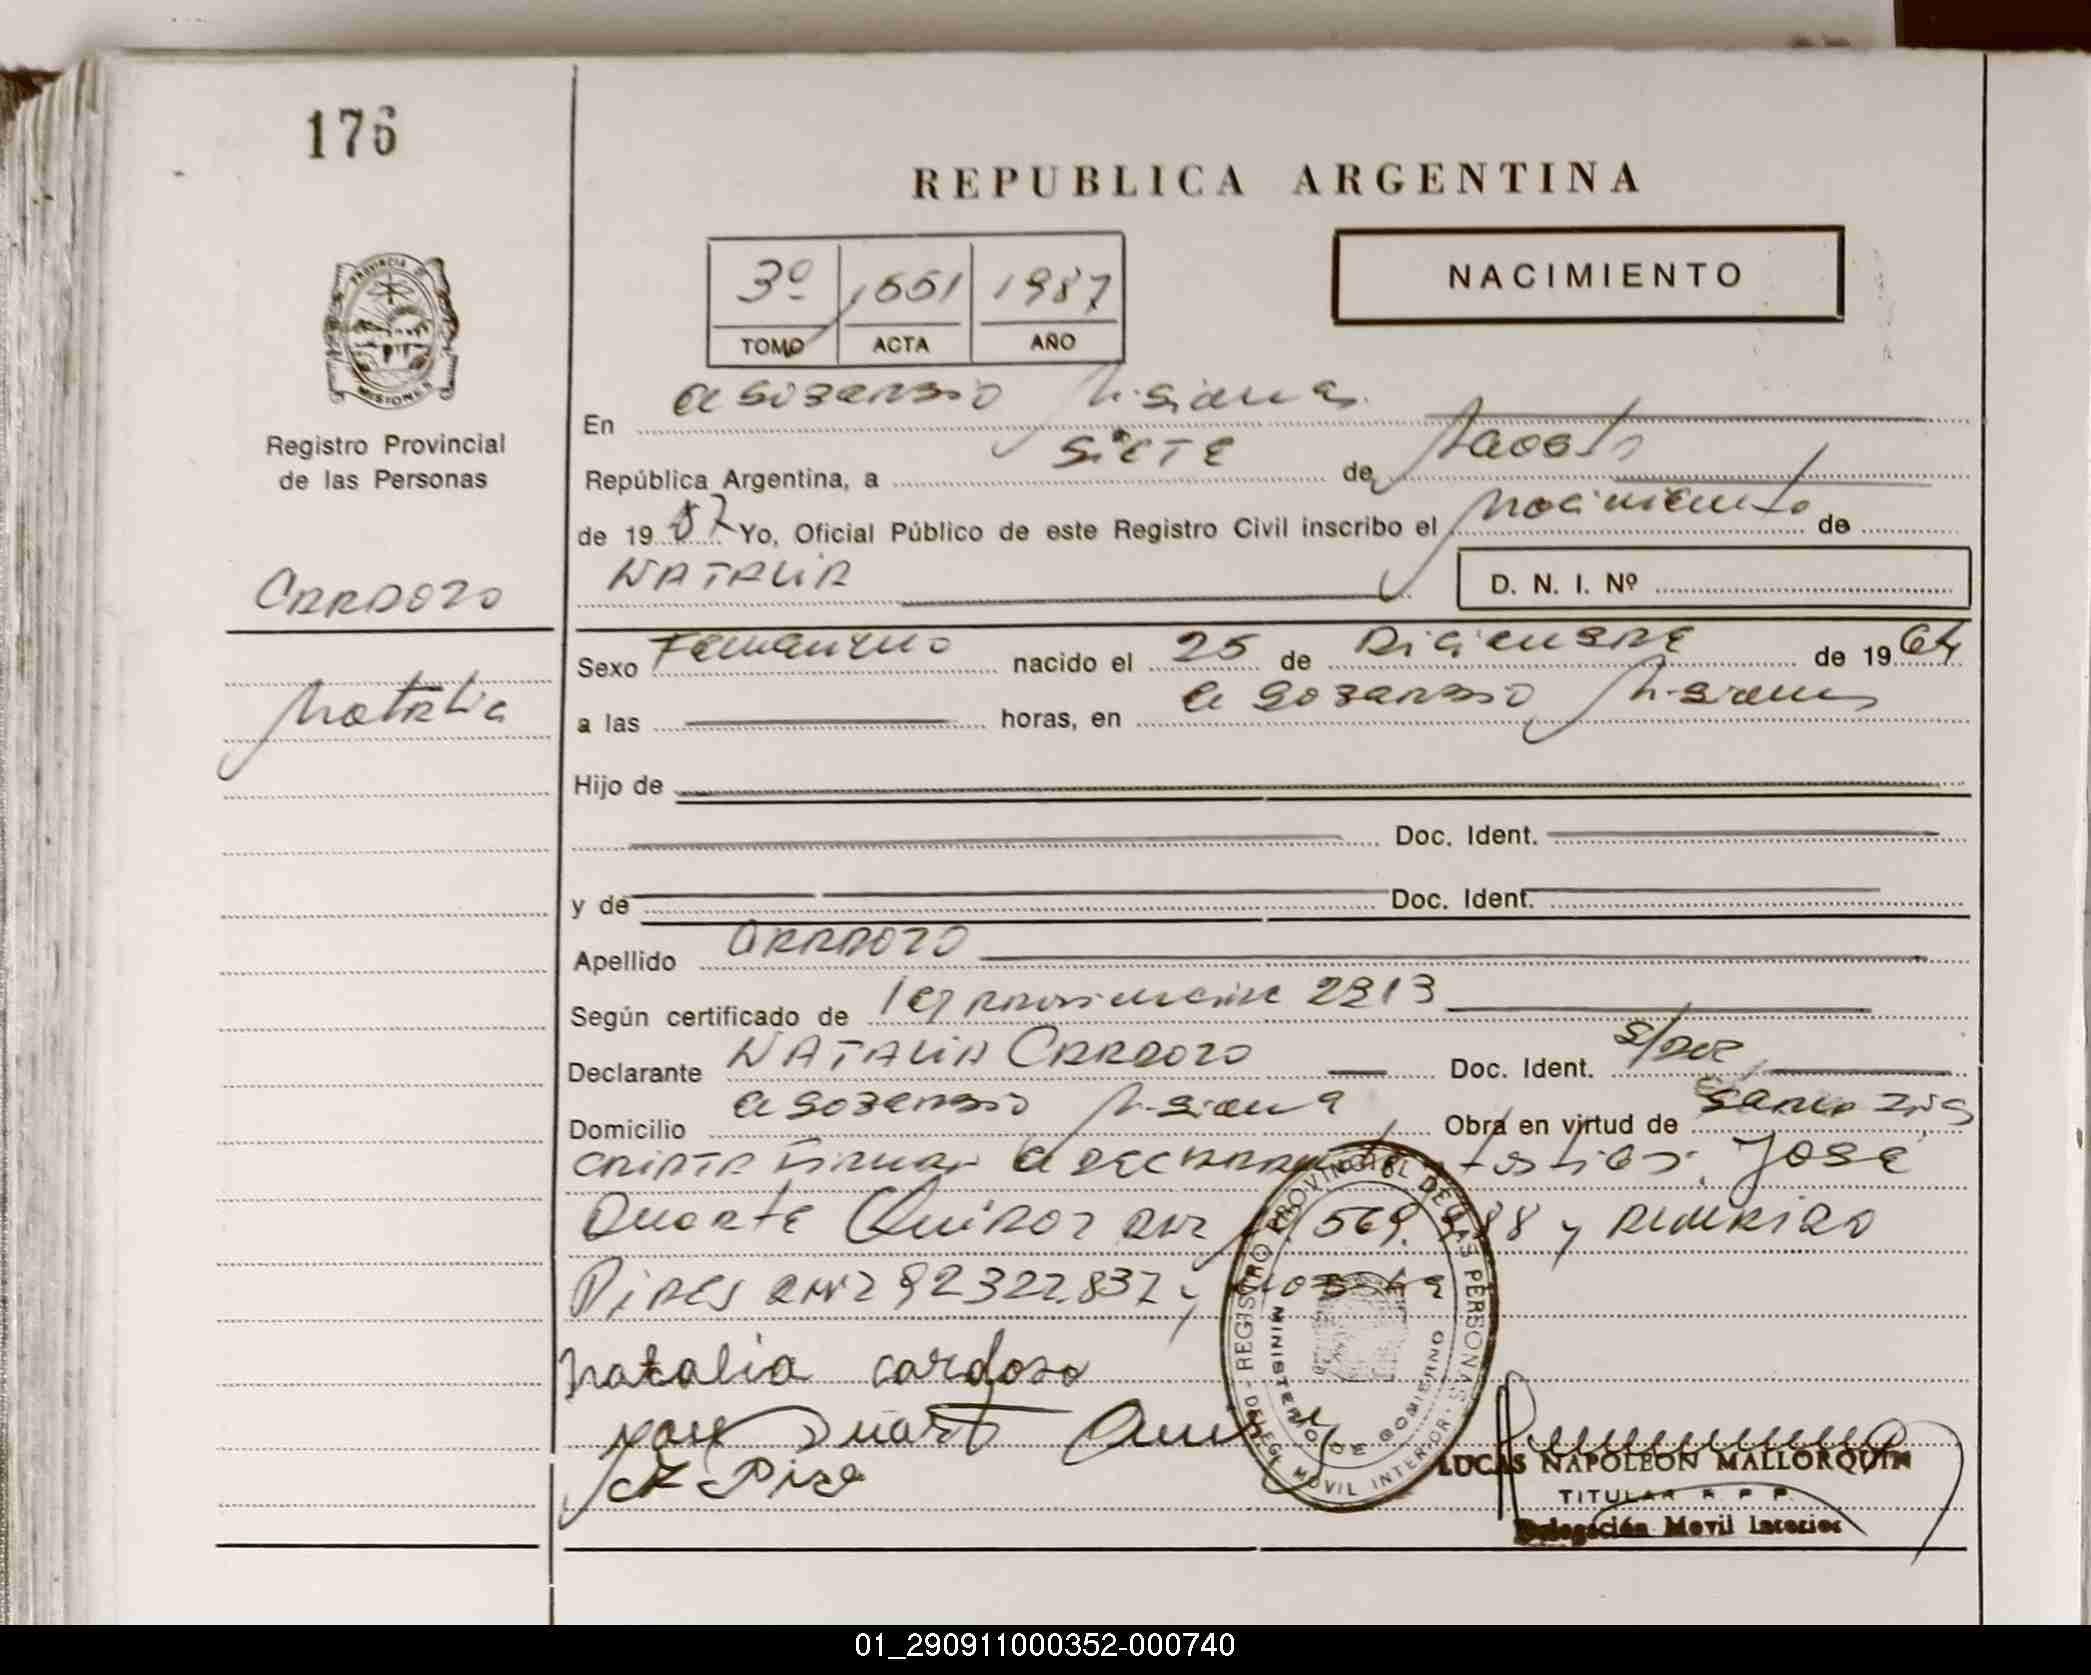 176
REPUBLICA ARGENTINA
3º 1551 1987
TOMO ACTA AÑO
NACIMIENTO
PROVINCIA DE MISIONES
Registro Provincial
de las Personas
CARDOZO
Natalia
En El Soberbio Misiones
República Argentina, a SIETE de Agosto
de 1987 Yo, Oficial Público de este Registro Civil inscribo el Nacimiento de
NATALIA
D. N. I. Nº
Sexo Femenino nacido el 25 de Diciembre de 1964
a las horas, en El Soberbio Misiones
Hijo de
Doc. Ident.
y de Doc. Ident.
Apellido CARDOZO
Según certificado de Ley 2213
Declarante NATALIA CARDOZO Doc. Ident. S/Doc
Domicilio El Soberbio Misiones Obra en virtud de
firman El Declarante testigos José
Duarte Quiroz DNI 569. 88 y Ramiro
Pires DNI 92322.832 y
natalia cardoso
Duarte
Pires
REGISTRO PROVINCIAL DE LAS PERSONAS
MINISTERIO DE GOBIERNO
DELEG. MOVIL INTERIOR
LUCAS NAPOLEON MALLORQUIN
TITULAR R. P. P.
Delegación Movil Interior
01_290911000352-000740